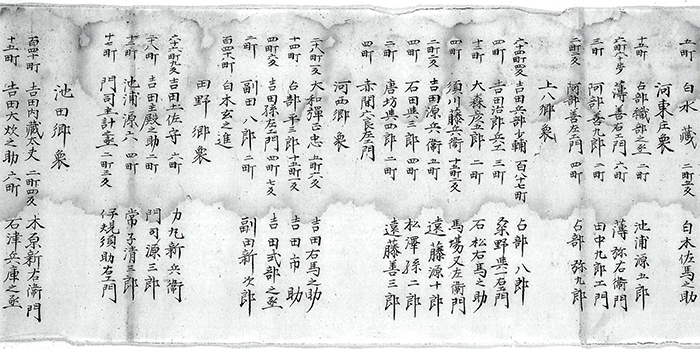 五町 白木 藏 二町二反 白木佐馬之助
河東庄衆
十二町 占部織部之丞 二町 池浦源五郎
六町六十歩 薄善右エ門 六町 薄弥右衛門
二町 阿部善九郎 二町 田中九郎エ門
二町二反 阿部善左エ門 占部弥九郎
上八郷衆
六十四町六反 吉田兵部少輔 百八十七町 占部八郎
四町 吉田治郎兵エ 三町 桑野與一右エ門
十三町 大森彦五郎 二町 石松右馬之助
四町 須川藤兵衛 十五町二反 馬場又左衛門
二町二反 吉田源兵衛 五町 遠藤源十郎
四町 石田與三郎 四町 松澤孫二郎
二町 唐坊與四郎 二町 遠藤善三郎
四町 赤間六郎左エ門
河西郷衆
二十八町六反 大和弾正忠 五町六反 吉田右馬之助
十四町 占部平三郎 十五町六反 吉田市助
四町六反 吉田孫左エ門 四町七反 吉田式部之丞
二町 副田八郎 二町 副田新次郎
百四十町 白木玄之進
田野郷衆
六十六町九反 吉田土佐守 六町 力丸新兵衛
二十八町 吉田主殿之助 二町 門司源三郎
十三町 池浦源六 四町 常子清三郎
十七町 門司主計之丞 二町三反 伊規須助右エ門
池田郷衆
百四十町 吉田内藏太夫 二町四反 木原新右衛門
十五町 吉田大炊之助 六町 石津兵庫之丞